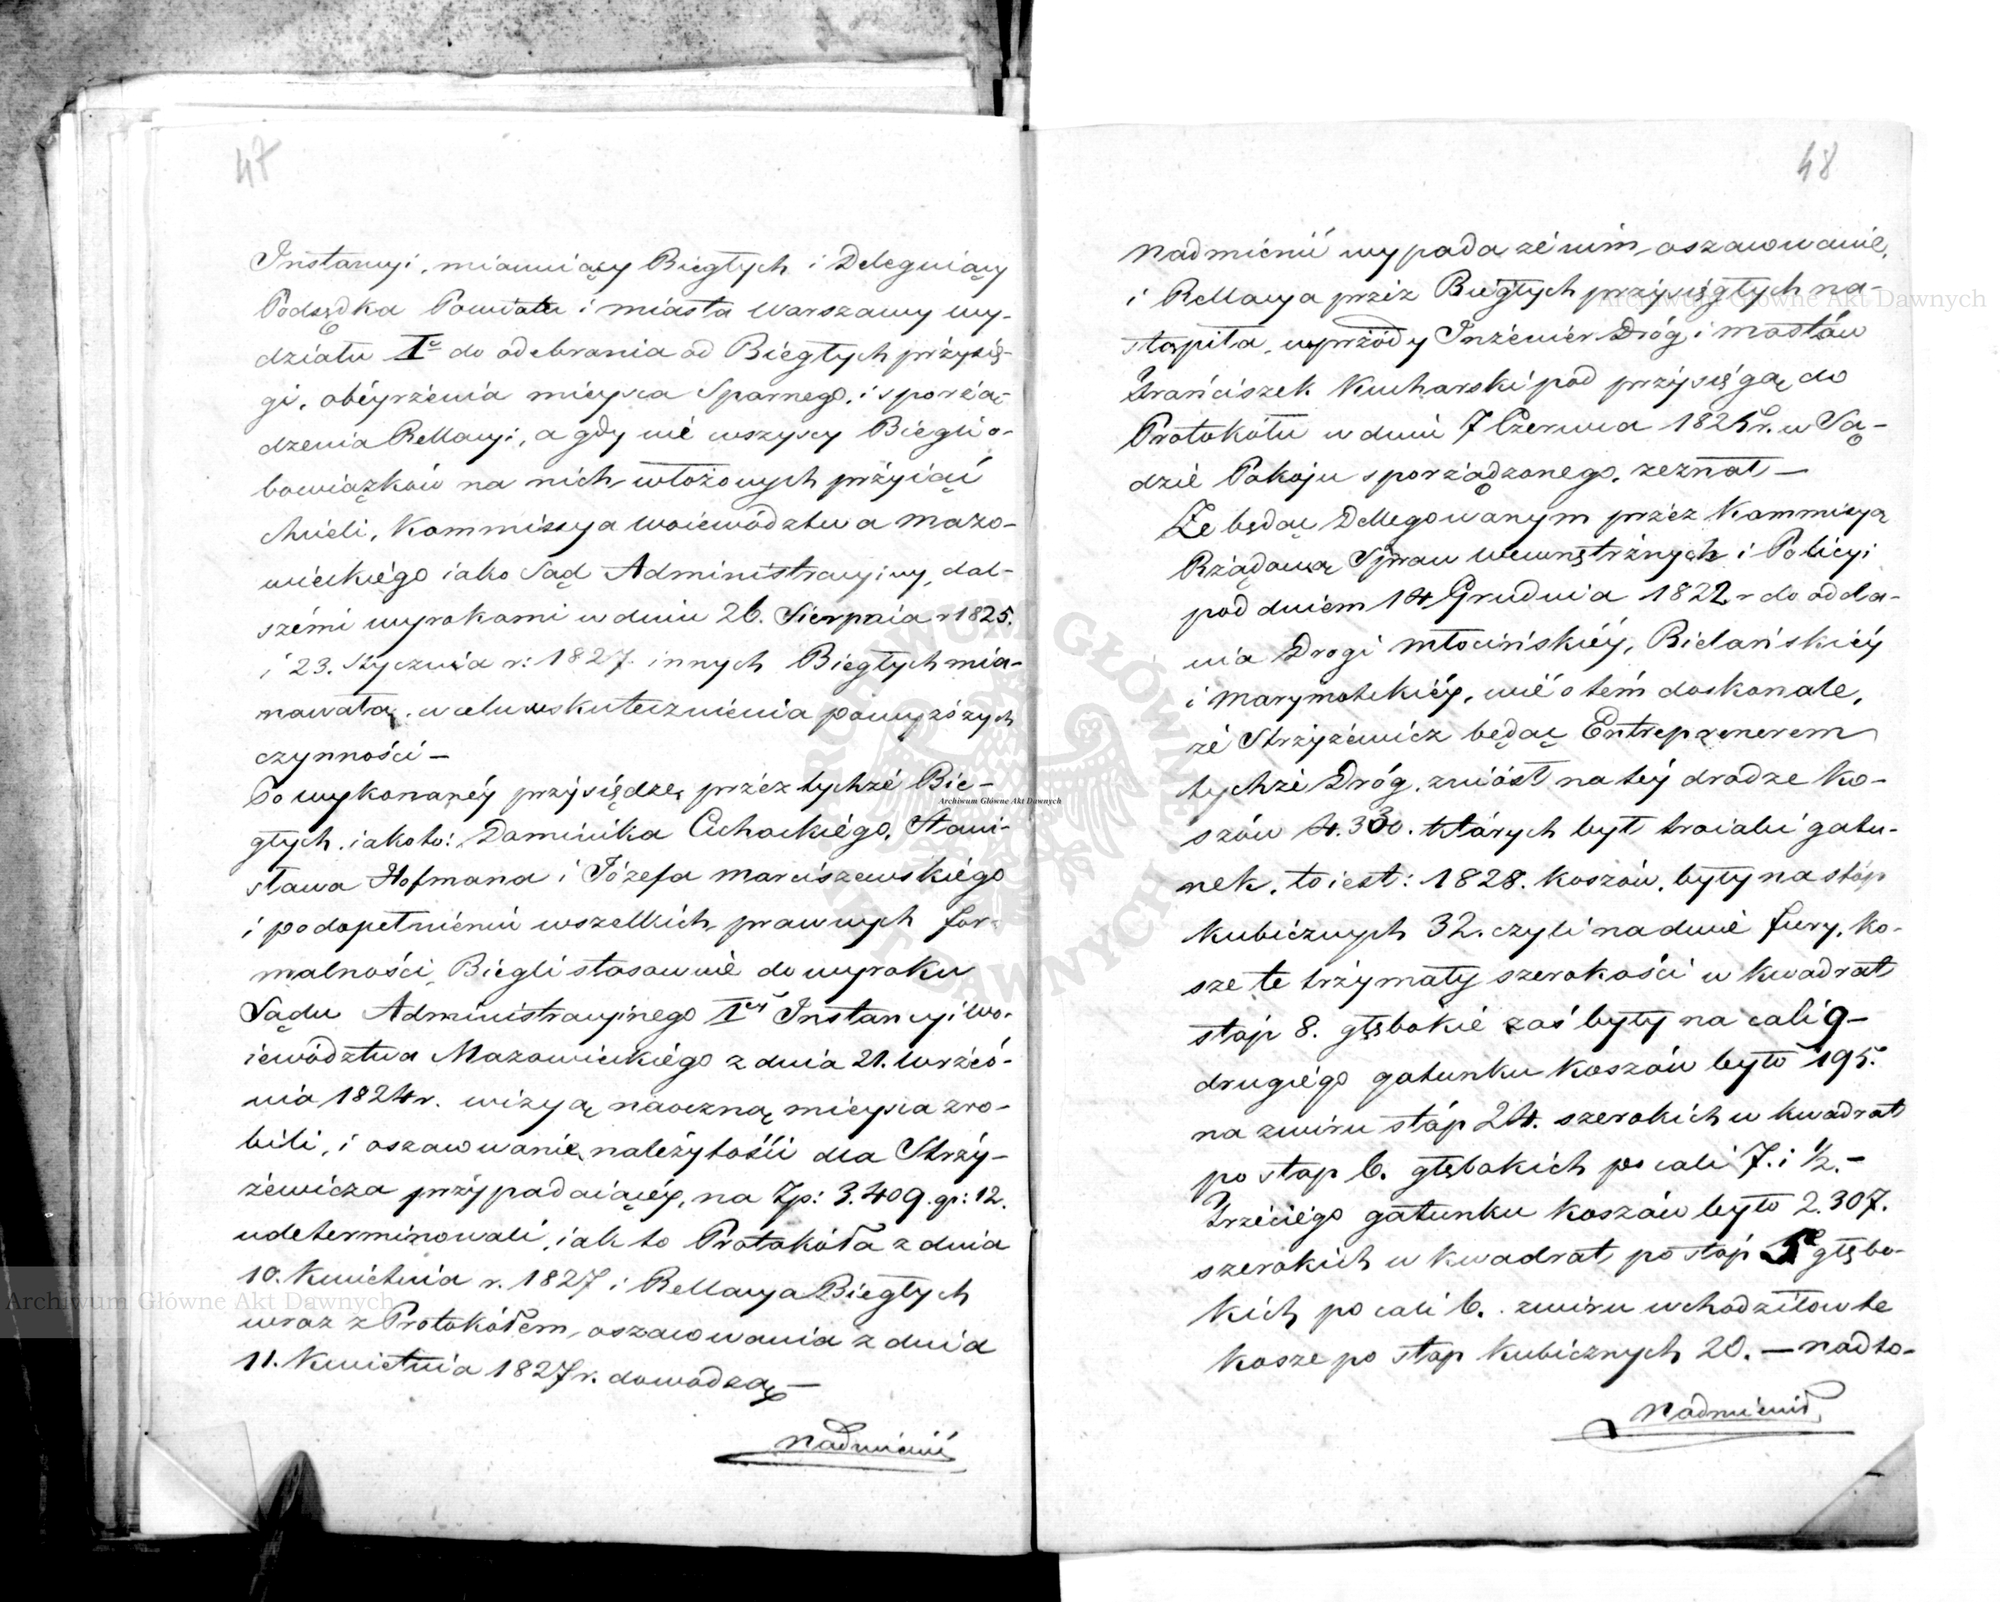 47
Instancyi, mianuiący Biegłych i Deleguiący
Podsędka Powiatu i miasta Warszawy wy-
działu I° do odebrania od Biegłych przysię-
gi, obeyrzenia mieysca Spornego, i sporzą-
dzenia Rellacyi, a gdy nie wszyscy Biegli o-
bowiązków na nich włożonych przyiąć
chcieli, Kommissya Woiewództwa Mazo-
wieckiego iako Sąd Administracyiny, dal-
szemi wyrokami w dniu 26. Sierpnia r 1825.
i 23. Stycznia r: 1827. innych Biegłych mia-
nowała, w celu uskutecznienia powyższych
czynności —
Po wykonaney przysiędze, przez tychże Bie-
głych, iakoto: Dominika Cichockiego, Stani-
sława Hofmana i Józefa Marciszewskiego
i po dopełnieniu wszelkich prawnych for-
malności, Biegli stosownie do wyroku
Sądu Administracyinego Iey Instancyi Wo-
iewództwa Mazowieckiego z dnia 21. Wrześ-
nia 1824 r. wizyą naoczną mieysca zro-
bili, i oszacowanie należytości dla Strzy-
żewicza przypadaiącey, na Zp: 3.409. gr: 12.
udeterminowali, iak to Protokóła z dnia
10. Kwietnia r. 1827 i Rellacya Biegłych
wraz z Protokółem oszacowania z dnia
11. Kwietnia 1827 r. dowodzą —
Nadmienić
48
Nadmienić wypada że nim oszacowanie,
i Rellacya przez Biegłych przysięgłych na-
stąpiła, wprzódy Inżenier Dróg i mostów
Franciszek Kucharski pod przysięgą do
Protokółu w dniu 7 Czerwca 1825 r. w Są-
dzie Pokoju sporządzonego, zeznał —
Że będąc Dellegowanym przez Kommisyą
Rządową Spraw Wewnętrznych i Policyi
pod dniem 14 Grudnia 1822 r do odda-
nia Drogi Młocińskiéy, Bielańskiéy
i Marymotskiéy, wie o tém doskonale,
że Strzyżewicz będąc Entreprenerem
tychże Dróg, zwióśł na tey drodze ko-
szów 4.330. których był troiaki gatu-
nek, to iest: 1828. koszów, były na stóp
kubicznych 32. czyli na dwie fury, ko-
sze te trzymały szerokości w kwadrat
stóp 8. głębokie zaś były na cali 9 —
drugiego gatunku koszów było 195.
na zwiru stóp 24. szerokich w kwadrat
po stop 6. głębokich po cali 7. i ½. —
Trzeciego gatunku koszów było 2.307.
szerokich w kwadrat po stop 5 głębo-
kich po cali 6. zwiru wchodziło w te
kosze po stop kubicznych 20. — nadto-
Nadmienił
Archiwum Główne Akt Dawnych
Archiwum Główne Akt Dawnych
Archiwum Główne Akt Dawnych
ARCHIWUM GŁÓWNE AKT DAWNYCH